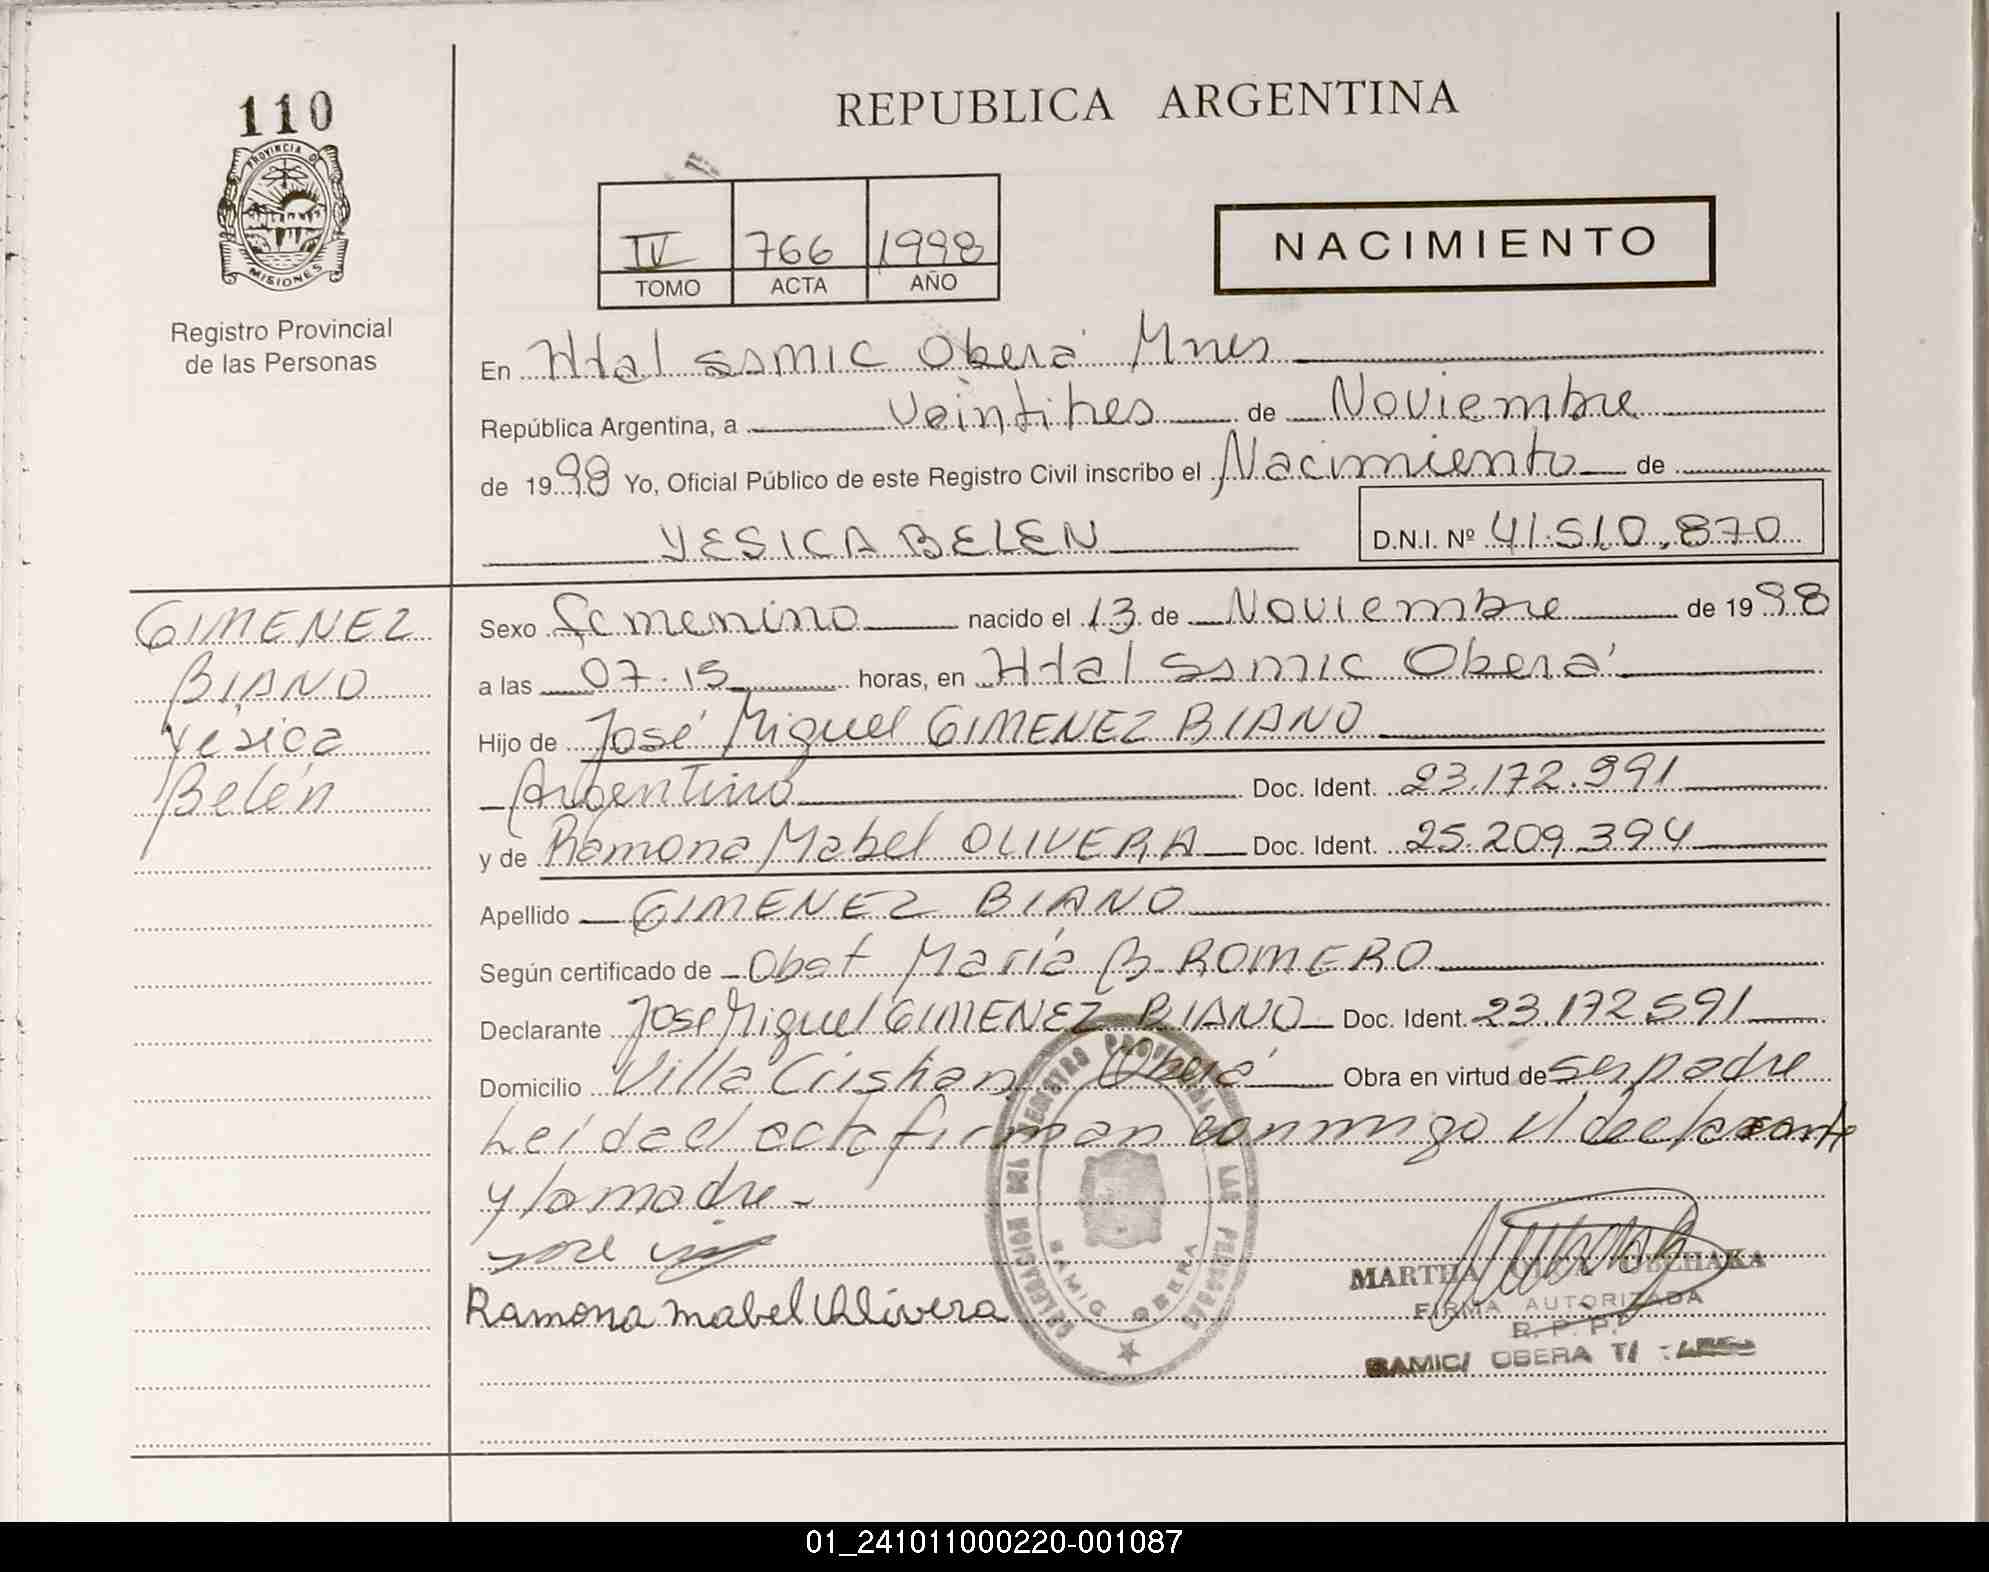 110
PROVINCIA D
MISIONES
Registro Provincial
de las Personas
REPUBLICA ARGENTINA
IV 766 1998
TOMO ACTA AÑO
NACIMIENTO
En Htal SAMIC Oberá Mnes
República Argentina, a Veintitres de Noviembre
de 1998 Yo, Oficial Público de este Registro Civil inscribo el Nacimiento de
YESICA BELEN D.N.I. Nº 41.510.870
GIMENEZ
BIANO
Yésica
Belén
Sexo femenino nacido el 13 de Noviembre de 1998
a las 07.15 horas, en Htal SAMIC Oberá
Hijo de José Miguel GIMENEZ BIANO
Argentino Doc. Ident. 23.172.991
y de Ramona Mabel OLIVERA Doc. Ident. 25.209.394
Apellido GIMENEZ BIANO
Según certificado de Obst María B. ROMERO
Declarante José Miguel GIMENEZ BIANO Doc. Ident. 23.172.591
Domicilio Villa Cristian Oberá Obra en virtud de ser padre
Leída el acta firman conmigo el declarante
y la madre -
Ramona Mabel Olivera
DELEGACION DEL REGISTRO PROVINCIAL DE LAS PERSONAS
SAMIC OBERA
MARTHA
FIRMA AUTORIZADA
R. P. P.
SAMIC/ OBERA T/
01_241011000220-001087